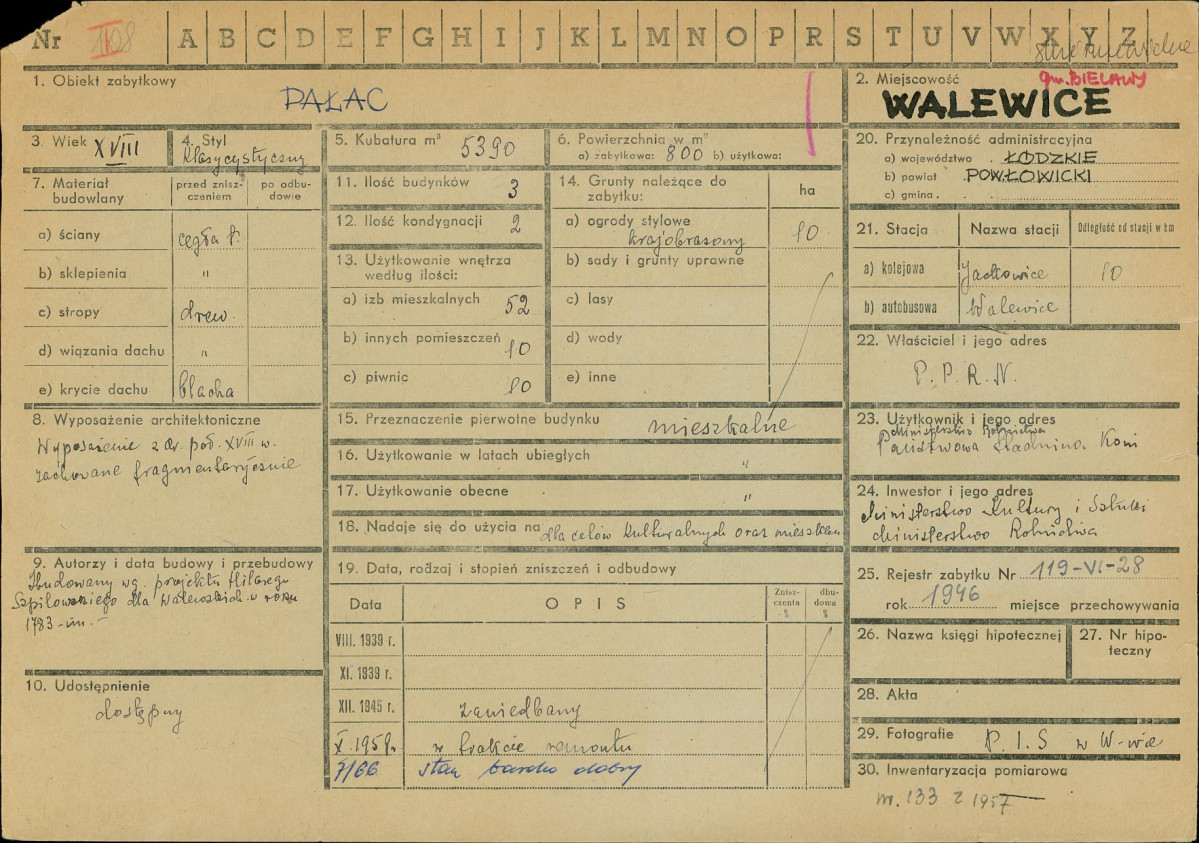 Nr I 108 A B C D E F G H I J K L M N O P R S T U V W X Y Z
skierniewickie
1. Obiekt zabytkowy
PAŁAC
2. Miejscowość gm. BIELAWY
WALEWICE
3. Wiek XVIII
4. Styl klasycystyczny
5. Kubatura m³ 5390
6. Powierzchnia w m²
a) zabytkowa: 800 b) użytkowa:
7. Materiał budowlany
przed zniszczeniem
po odbudowie
a) ściany cegła
b) sklepienia "
c) stropy drew.
d) wiązania dachu "
e) krycie dachu blacha
8. Wyposażenie architektoniczne
Wyposażenie z dr. poł. XVIII w.
zachowane fragmentarycznie
9. Autorzy i data budowy i przebudowy
Zbudowany wg. projektu Hilarego
Szpilowskiego dla Walewskich w roku
1783-im.-
10. Udostępnienie
dostępny
11. Ilość budynków 3
12. Ilość kondygnacji 2
13. Użytkowanie wnętrza
według ilości:
a) izb mieszkalnych 52
b) innych pomieszczeń 10
c) piwnic 10
14. Grunty należące do
zabytku:
ha
a) ogrody stylowe
krajobrazowy 10
b) sady i grunty uprawne
c) lasy
d) wody
e) inne
15. Przeznaczenie pierwotne budynku mieszkalne
16. Użytkowanie w latach ubiegłych "
17. Użytkowanie obecne "
18. Nadaje się do użycia na dla celów kulturalnych oraz mieszkaln
19. Data, rodzaj i stopień zniszczeń i odbudowy
Data OPIS Zniszczenia % dbudowa %
VIII. 1939 r.
XI. 1939 r.
XII. 1945 r. zaniedbany
X. 1959r. w trakcie remontu
7/66 stan bardzo dobry
20. Przynależność administracyjna
a) województwo ŁÓDZKIE
b) powiat POWŁOWICKI
c) gmina
21. Stacja Nazwa stacji Odległość od stacji w km
a) kolejowa Jackowice 10
b) autobusowa Walewice
22. Właściciel i jego adres
P. P. R. N.
23. Użytkownik i jego adres
Ministerstwo Rolnictwa
Państwowa Stadnina Koni
24. Inwestor i jego adres
Ministerstwo Kultury i Sztuki
Ministerstwo Rolnictwa
25. Rejestr zabytku Nr 119-VI-28
rok 1946 miejsce przechowywania
26. Nazwa księgi hipotecznej
27. Nr hipoteczny
28. Akta
29. Fotografie P. I. S w W-wie
30. Inwentaryzacja pomiarowa
nr. 133 z 1957